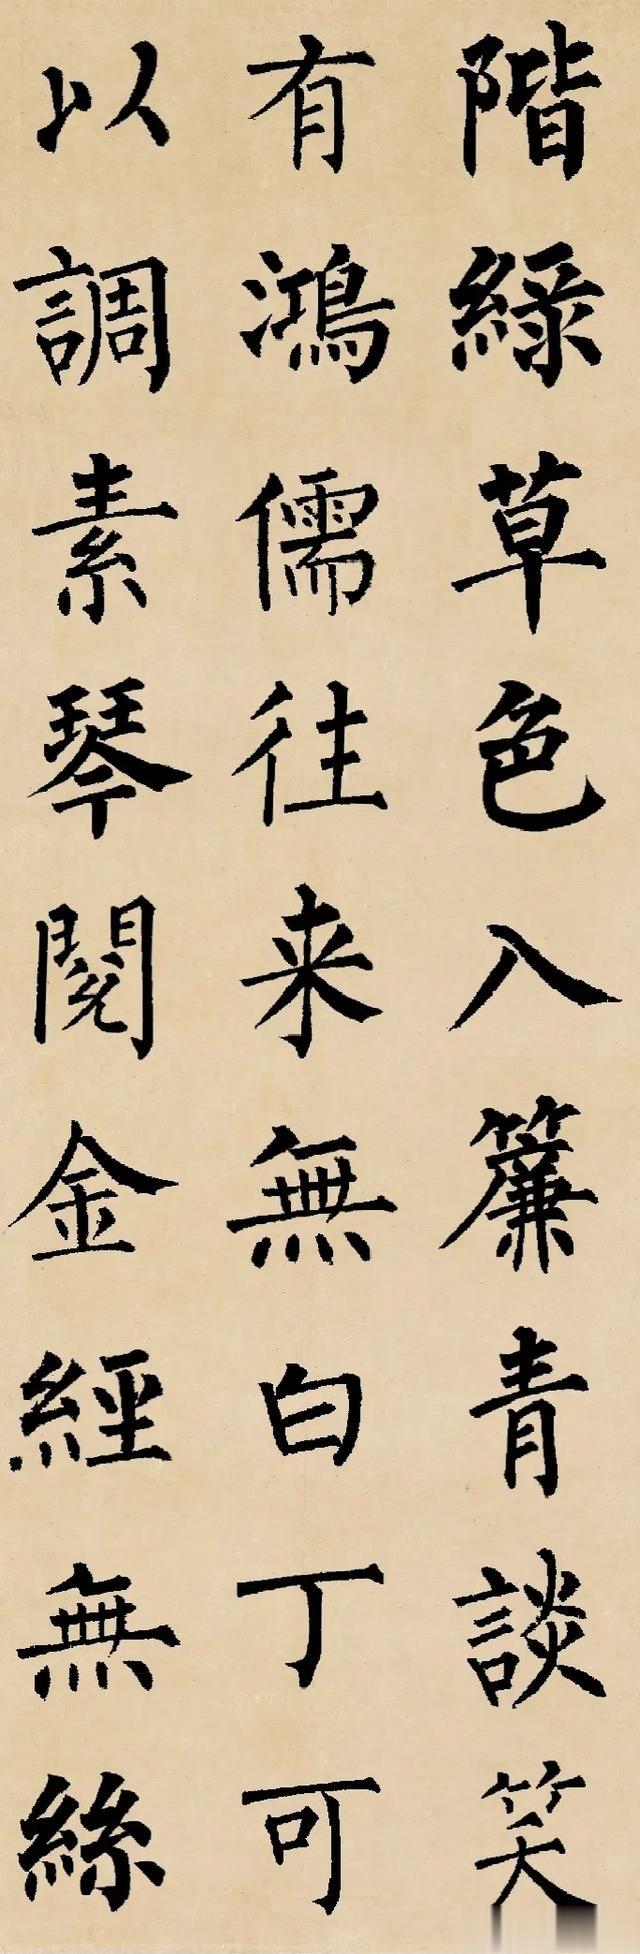 階綠草色入簾青談笑
有鴻儒往来無白丁可
以調素琴閱金經無絲